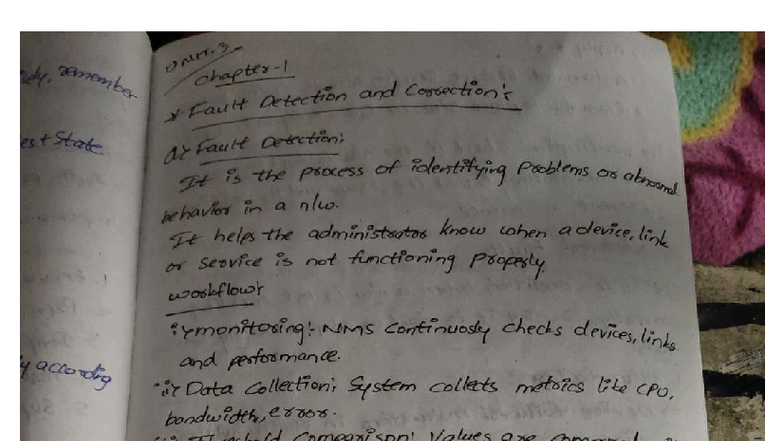 dy, remember
est State
y according
UNIT-3
Chapter-1
* Fault Detection and Correction:
a) Fault Detection:
It is the process of identifying problems or abnormal
behavior in a n/w.
It helps the administrator know when a device, link
or service is not functioning properly.
workflow:
i) monitoring:- NMS Continuosly checks devices, links
and performance.
ii) Data Collection: System collects metrics like CPU,
bandwidth, error.
Threshold Comparison: Values are